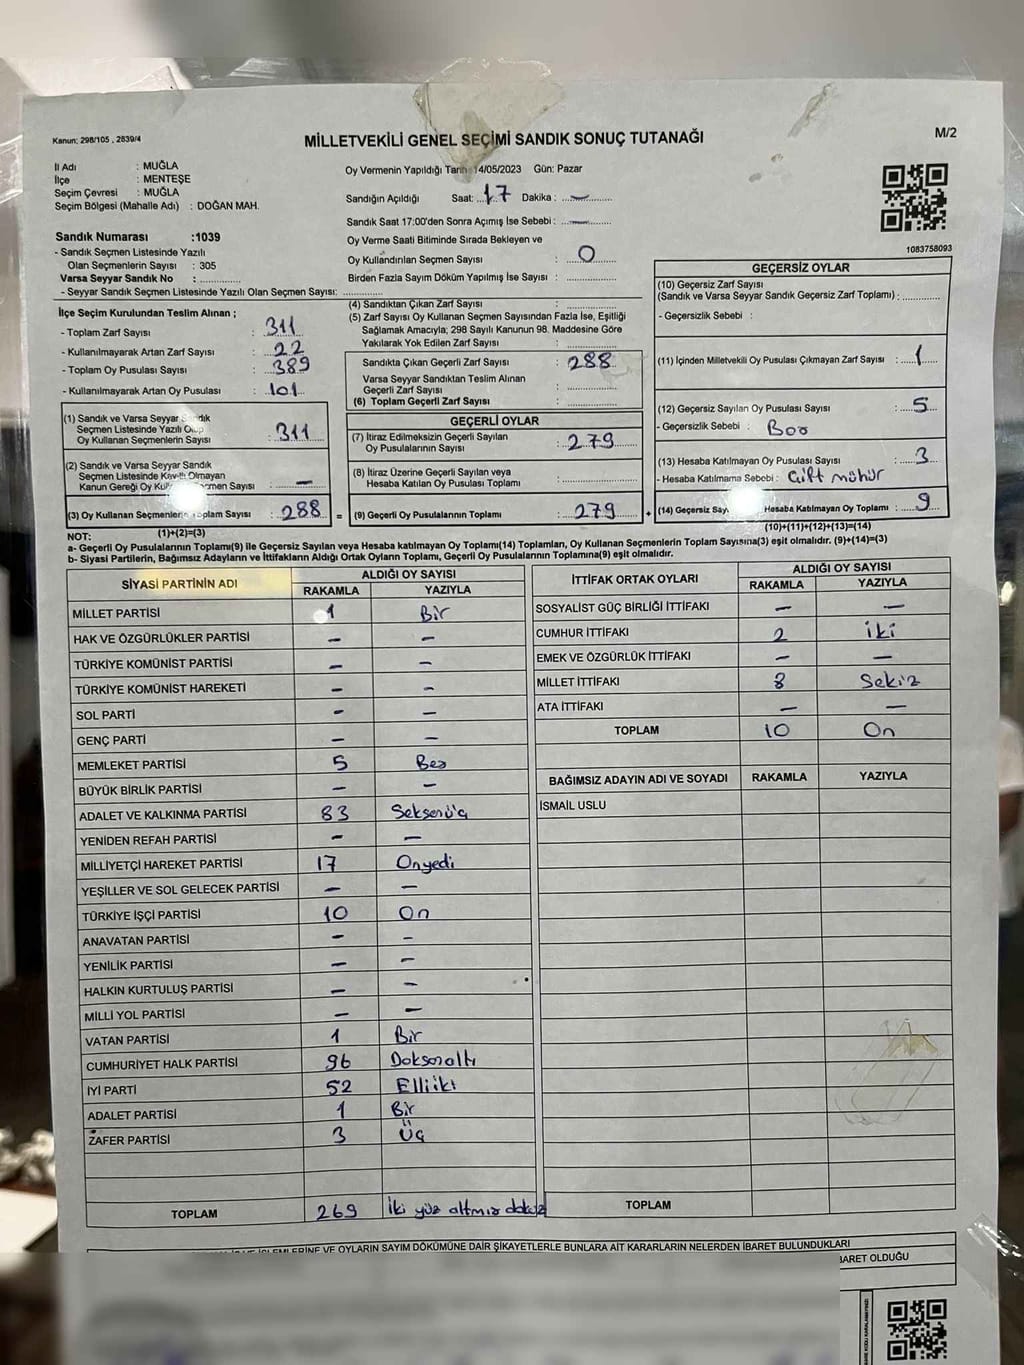 Kanun: 298/105 , 2839/4
MİLLETVEKİLİ GENEL SEÇİMİ SANDIK SONUÇ TUTANAĞI
M/2
İl Adı : MUĞLA
İlçe : MENTEŞE
Seçim Çevresi : MUĞLA
Seçim Bölgesi (Mahalle Adı) : DOĞAN MAH.
Sandık Numarası :1039
- Sandık Seçmen Listesinde Yazılı
Olan Seçmenlerin Sayısı : 305
Varsa Seyyar Sandık No :
- Seyyar Sandık Seçmen Listesinde Yazılı Olan Seçmen Sayısı:
Oy Vermenin Yapıldığı Tarih 14/05/2023 Gün: Pazar
Sandığın Açıldığı Saat: 17 Dakika : —
Sandık Saat 17:00'den Sonra Açımış İse Sebebi : —
Oy Verme Saati Bitiminde Sırada Bekleyen ve
Oy Kullandırılan Seçmen Sayısı : 0
Birden Fazla Sayım Döküm Yapılmış İse Sayısı :
1083758093
İlçe Seçim Kurulundan Teslim Alınan ;
- Toplam Zarf Sayısı : 311
- Kullanılmayarak Artan Zarf Sayısı : 22
- Toplam Oy Pusulası Sayısı : 389
- Kullanılmayarak Artan Oy Pusulası : 101
(1) Sandık ve Varsa Seyyar Sandık
Seçmen Listesinde Yazılı Olup
Oy Kullanan Seçmenlerin Sayısı : 311
(2) Sandık ve Varsa Seyyar Sandık
Seçmen Listesinde Kayıtlı Olmayan
Kanun Gereği Oy Seçmen Sayısı : —
(3) Oy Kullanan Seçmenlerin Toplam Sayısı : 288 =
(1)+(2)=(3)
(4) Sandıktan Çıkan Zarf Sayısı :
(5) Zarf Sayısı Oy Kullanan Seçmen Sayısından Fazla İse, Eşitliği
Sağlamak Amacıyla; 298 Sayılı Kanunun 98. Maddesine Göre
Yakılarak Yok Edilen Zarf Sayısı :
Sandıkta Çıkan Geçerli Zarf Sayısı : 288
Varsa Seyyar Sandıktan Teslim Alınan
Geçerli Zarf Sayısı :
(6) Toplam Geçerli Zarf Sayısı :
GEÇERLİ OYLAR
(7) İtiraz Edilmeksizin Geçerli Sayılan
Oy Pusulalarının Sayısı : 279
(8) İtiraz Üzerine Geçerli Sayılan veya
Hesaba Katılan Oy Pusulası Toplamı :
(9) Geçerli Oy Pusulalarının Toplamı : 279 +
GEÇERSİZ OYLAR
(10) Geçersiz Zarf Sayısı
(Sandık ve Varsa Seyyar Sandık Geçersiz Zarf Toplamı) :
- Geçersizlik Sebebi :
(11) İçinden Milletvekili Oy Pusulası Çıkmayan Zarf Sayısı : 1
(12) Geçersiz Sayılan Oy Pusulası Sayısı : 5
- Geçersizlik Sebebi : Boş
(13) Hesaba Katılmayan Oy Pusulası Sayısı : 3
- Hesaba Katılmama Sebebi : Çift mühür
(14) Geçersiz Hesaba Katılmayan Oy Toplamı : 9
(10)+(11)+(12)+(13)=(14)
NOT:
a- Geçerli Oy Pusulalarının Toplamı(9) ile Geçersiz Sayılan veya Hesaba katılmayan Oy Toplamı(14) Toplamları, Oy Kullanan Seçmenlerin Toplam Sayısına(3) eşit olmalıdır. (9)+(14)=(3)
b- Siyasi Partilerin, Bağımsız Adayların ve İttifakların Aldığı Ortak Oyların Toplamı, Geçerli Oy Pusulalarının Toplamına(9) eşit olmalıdır.
SİYASİ PARTİNİN ADI ALDIĞI OY SAYISI
RAKAMLA YAZIYLA
MİLLET PARTİSİ 1 Bir
HAK VE ÖZGÜRLÜKLER PARTİSİ — —
TÜRKİYE KOMÜNİST PARTİSİ — —
TÜRKİYE KOMÜNİST HAREKETİ — —
SOL PARTİ — —
GENÇ PARTİ — —
MEMLEKET PARTİSİ 5 Beş
BÜYÜK BİRLİK PARTİSİ — —
ADALET VE KALKINMA PARTİSİ 83 Seksenüç
YENİDEN REFAH PARTİSİ — —
MİLLİYETÇİ HAREKET PARTİSİ 17 Onyedi
YEŞİLLER VE SOL GELECEK PARTİSİ — —
TÜRKİYE İŞÇİ PARTİSİ 10 On
ANAVATAN PARTİSİ — —
YENİLİK PARTİSİ — —
HALKIN KURTULUŞ PARTİSİ — —
MİLLİ YOL PARTİSİ — —
VATAN PARTİSİ 1 Bir
CUMHURİYET HALK PARTİSİ 96 Doksanaltı
İYİ PARTİ 52 Elliiki
ADALET PARTİSİ 1 Bir
ZAFER PARTİSİ 3 Üç
TOPLAM 269 İki yüz altmış dokuz
İTTİFAK ORTAK OYLARI ALDIĞI OY SAYISI
RAKAMLA YAZIYLA
SOSYALİST GÜÇ BİRLİĞİ İTTİFAKI — —
CUMHUR İTTİFAKI 2 İki
EMEK VE ÖZGÜRLÜK İTTİFAKI — —
MİLLET İTTİFAKI 8 Sekiz
ATA İTTİFAKI — —
TOPLAM 10 On
BAĞIMSIZ ADAYIN ADI VE SOYADI RAKAMLA YAZIYLA
İSMAİL USLU
TOPLAM
VE OYLARIN SAYIM DÖKÜMÜNE DAİR ŞİKAYETLERLE BUNLARA AİT KARARLARIN NELERDEN İBARET BULUNDUKLARI
OLDUĞU